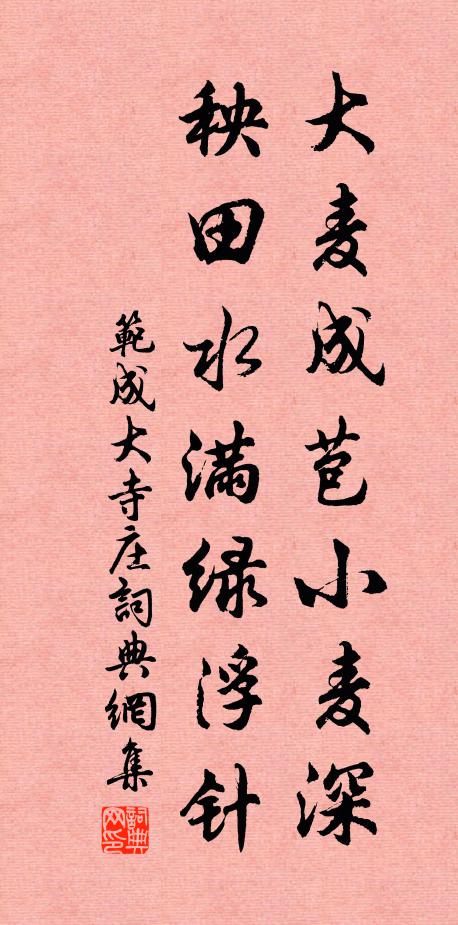 大麦成苞小麦深
秧田水满绿浮针
範成大寺庄詞典網集
詞典网印